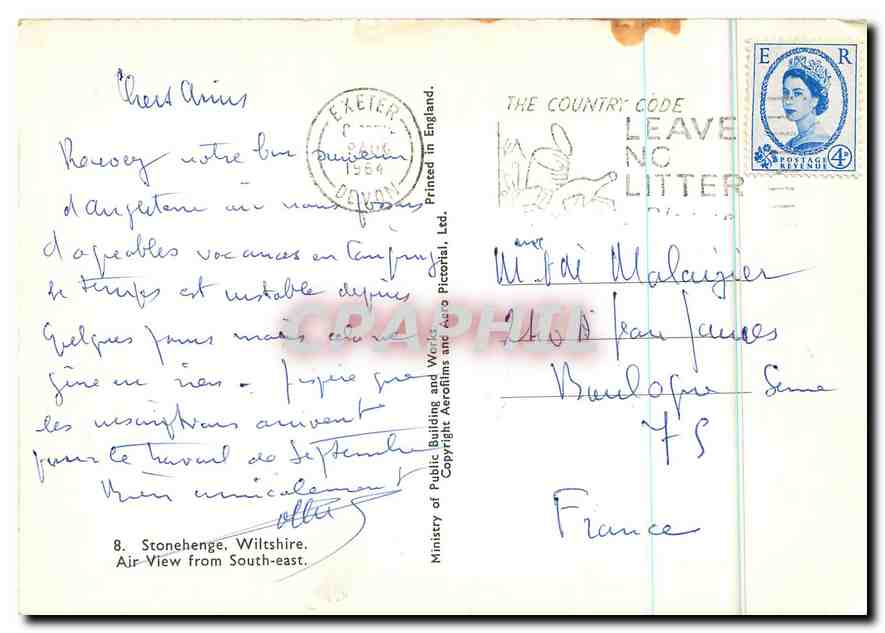 Chers Amis
Recevez notre bon souvenir
d'Angleterre où nous passons
d'agréables vacances en Camping
le temps est instable depuis
quelques jours mais cela ne
gêne en rien. J'espère que
les inscriptions arrivent
pour le travail de Septembre
Bien amicalement
8. Stonehenge, Wiltshire.
Air View from South-east.
EXETER
1964
DEVON
Ministry of Public Building and Works
Copyright Aerofilms and Aero Pictorial, Ltd. Printed in England.
THE COUNTRY CODE
LEAVE
NO
LITTER
E R
POSTAGE
REVENUE
4D
Malaizier
Jean Jaurès
Boulogne Seine
75
France
CPAPHIL